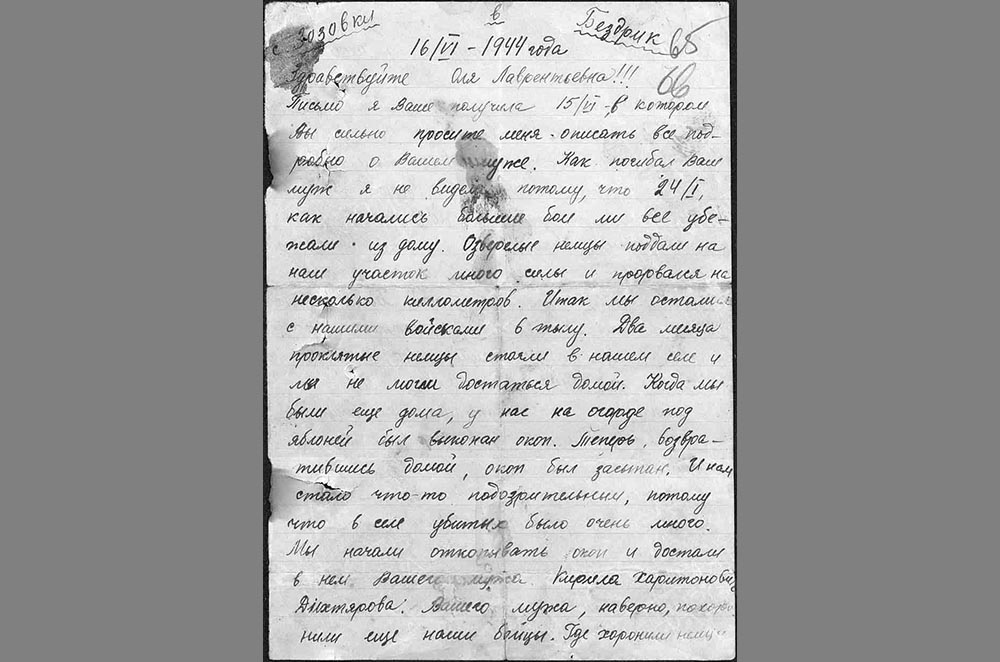 с Зозовки в Бездрик 65
16/VI - 1944 года 66
Здравствуйте Оля Лаврентьевна!!!
Письмо я Ваше получила 15/VI, в котором
Вы сильно просите меня описать все под-
робно о Вашем муже. Как погибал Ваш
муж я не видела потому, что 24/I,
как начались большие бои ми все убе-
жали из дому. Озверелые немцы поддали на
наш участок много силы и прорвался на
несколько киллометров. Итак мы остались
с нашими войсками в тылу. Два месяца
проклятые немцы стояли в нашем селе и
мы не могли достаться домой. Когда мы
были еще дома, у нас на огороде под
яблоней был выкопан окоп. Теперь, возвра-
тившись домой, окоп был засыпан. И нам
стало что-то подозрительным, потому
что в селе убитых было очень много.
Мы начали откопывать окоп и достали
в нем Вашего мужа Кирилла Харитоновича
Дихтярова. Вашего мужа, наверно, похоро-
нили еще наши бойцы. Где хоронили немцы